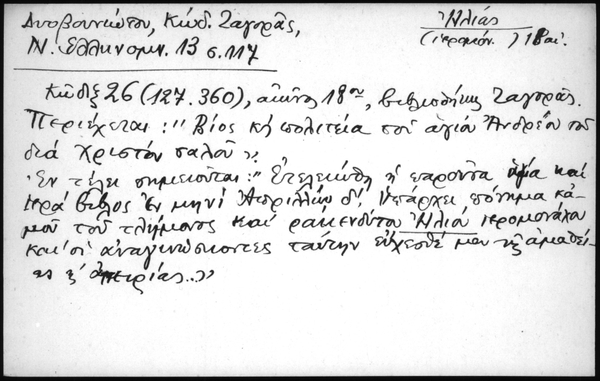 Δυοβουνιώτου, Κώδ. Ζαγορᾶς,
Ν. Ἑλληνομν. 13 σ. 117
Ἠλίας
(ἱερομόν.) 18 αἰ.
Κῶδιξ 26 (127. 360), αἰῶνος 18ου, βιβλιοθήκης Ζαγορᾶς.
Περιέχεται: "Βίος κὴ πολιτεία τοῦ ἁγίου Ἀνδρέου τοῦ
διά Χριστόν σαλοῦ".
Ἐν τέλει σημειοῦται: "Ἐτελειώθη ἡ παροῦσα ἁγία καί
ἱερά βίβλος ἐν μηνί Ἀπριλλίῳ δ'. Ὑπάρχει πόνημα κἀ-
μοῦ τοῦ τλήμονος καί ρακενδύτου Ἠλιού ἱερομονάχου
καί οἱ ἀναγινώσκοντες ταύτην εὔχεσθέ μοι τῆς ἀμαθεί-
ας ἀπειρίας.."